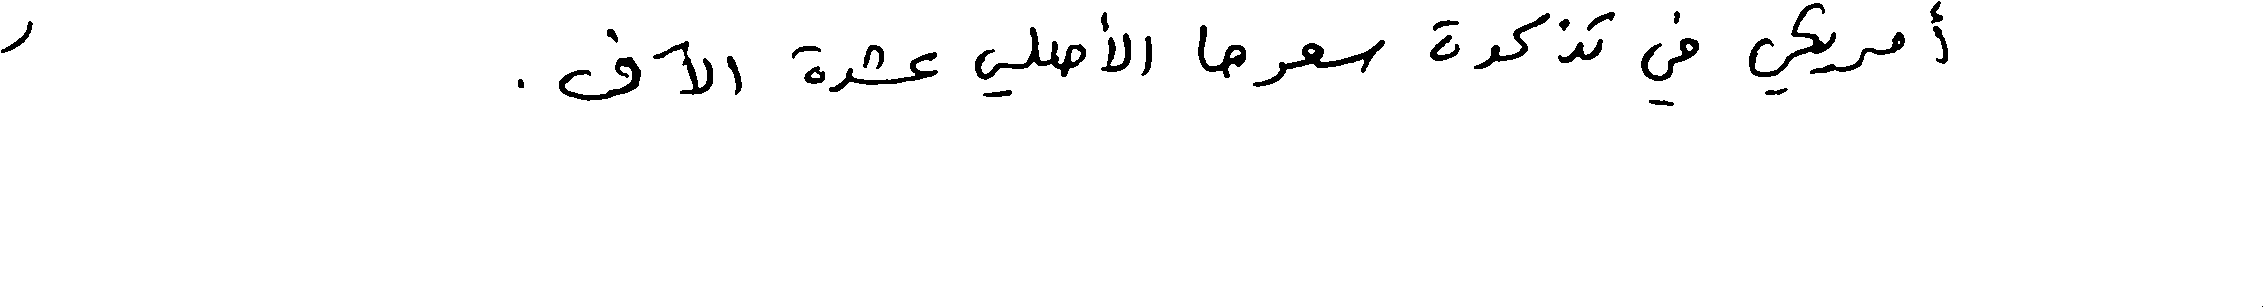 أمريكي في تذكرة سعرها الأصلي عشرة الآف .